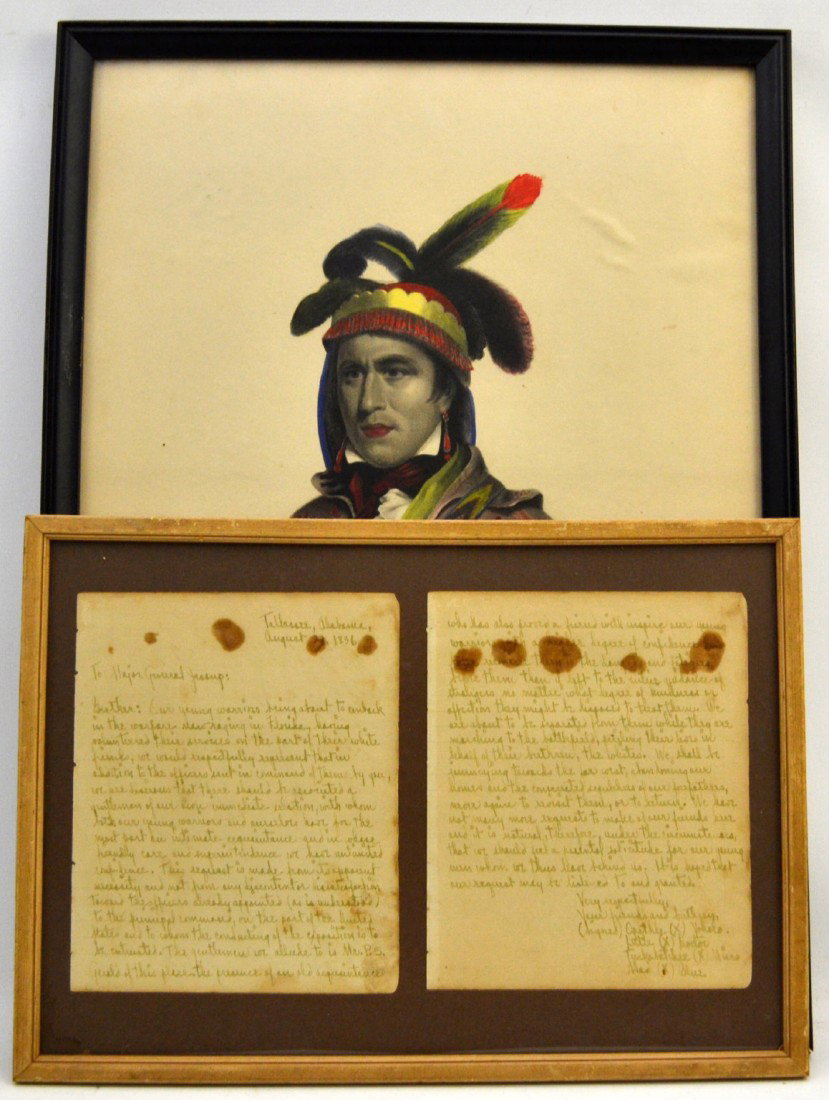 Tallassee, Alabama,
August 1836
To Major General Jessup:
Brother: Our young warriors being about to embark
in the warfare now raging in Florida, having
volunteered their services on the part of their white
friends, we would respectfully represent that in
addition to the officers sent in command of them by you,
we are desirous that there should be associated a
gentleman of our more immediate relation, with whom
both our young warriors and ourselves have for the
most part an intimate acquaintance and in whose
friendly care and superintendence we have unlimited
confidence. This request is made from its apparent
necessity and not from any discontent or dissatisfaction
toward the officers already appointed (as is understood)
to the principal command, on the part of the United
States and to whom the conducting of the expedition is to
be entrusted. The gentleman we allude to is Mr.
of this place the presence of an old acquaintance
who has also proved a friend will inspire our young
warriors with a higher degree of confidence
have them than if left to the guidance of
strangers no matter what degree of kindness or
affection they might be disposed to treat them. We
are about to be separated from them while they are
marching to the battlefield, periling their lives in
behalf of their brethren, the whites. We shall be
journeying towards the far west, abandoning our
homes and the sepulchres of our forefathers,
never again to revisit them, or to return. We have
not many more requests to make of our friends
and it is natural, therefore, under the circumstances,
that we should feel a parental solicitude for our young
men whom we thus leave behind us. It is hoped that
our request may be listened to and granted.
Very respectfully,
Your friends and brothers,
(Signed) (X) Yoholo.
Little (X) Doctor
Tuckabatchee (X)
Mad (X) Blue